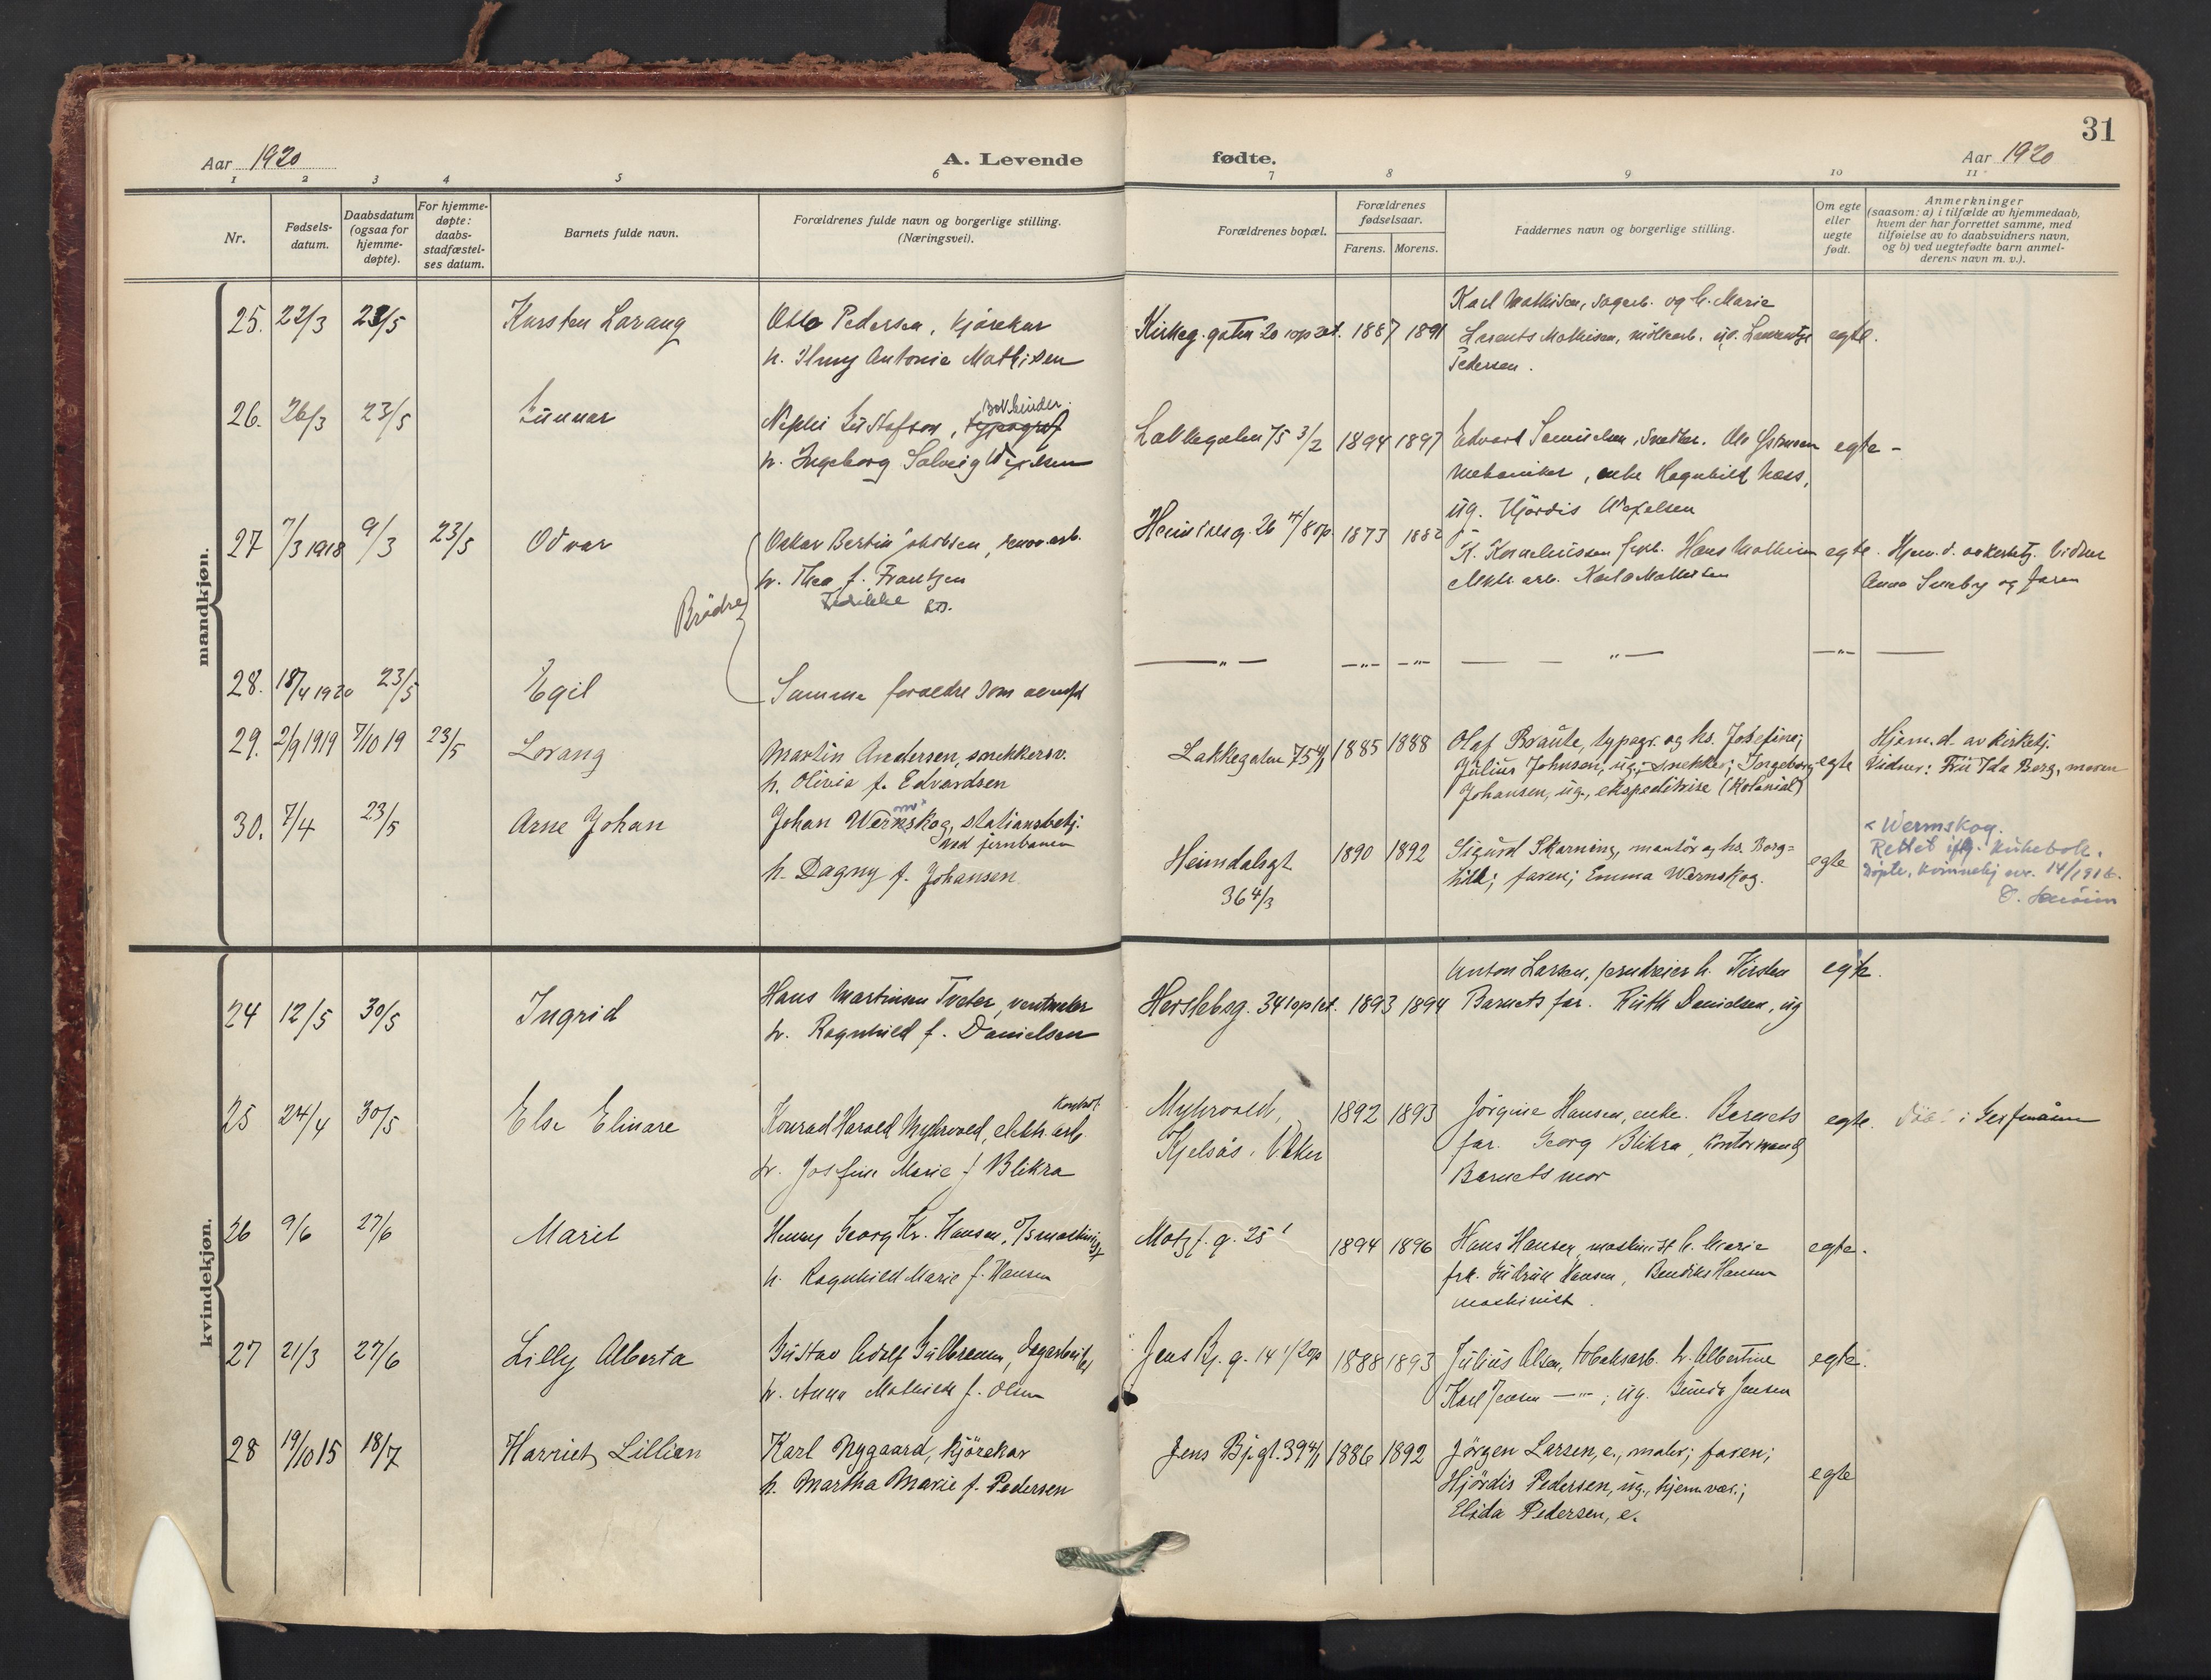 31
Aar 1920
A. Levende
fødte.
Aar 1920
1 2 3 4 5 6 7 8 9 10 11
Nr.
Fødsels-
datum.
Daabsdatum
(ogsaa for
hjemme-
døpte).
For hjemme-
døpte:
daabs-
stadfæstel-
ses datum.
Barnets fulde navn.
Forældrenes fulde navn og borgerlige stilling.
(Næringsvei).
Forældrenes bopæl.
Forældrenes
fødselsaar.
Farens. Morens.
Faddernes navn og borgerlige stilling.
Om egte
eller
uegte
født.
Anmerkninger
(saasom: a) i tilfælde av hjemmedaab,
hvem der har forrettet samme, med
tilføielse av to daabsvidners navn,
og b) ved uegtefødte barn anmel-
derens navn m. v.).
mandkjøn.
25. 22/3 23/5 Karsten Lorang
Otto Pedersen, kjørekar
h. Antonie Mathisen
Kirkeg.gaten 20 1887 1891
Karl Mathisen, sagarb. og h. Marie
Mathisen, ug.
Pedersen.
egte.
26. 26/3 23/5 Gunnar
Bokbinder.
Nephi Gustafson, typograf
h. Ingeborg Solveig
Lakkegaten 75 3/2 1894 1897
Edvard Samuelsen, snedker.
mekaniker, enke Ragnhild Næss,
ug. Hjørdis
egte -
27 7/3 1918 9/3 23/5 Odvar
Oskar Bertin Jakobsen, renov.arb.
h. Thea f. Frantzen
Brødre
Heimdalsg. 26 1873 1882
K. Korneliussen Hans Mathisen
arb. Karl Mathisen
egte. Hjem.d. av kirketj. Vidner
Anna og faren
28. 18/4 1920 23/5 Egil
Samme forældre som
—„— —„— —„— —„— —„—
29. 2/9 1919 7/10 19 23/5 Lorang
Martin Andersen, snekkersv.
h. Olivia f. Edvardsen
Lakkegaten 75 4/1 1885 1888
Olaf Braute, typogr. og hs. Josefine;
Julius Johnsen, ug., snekker; Ingeborg
Johansen, ug., ekspeditrise (Kolonial)
egte
Hjem.d. av kirketj.
Vidner: Frü Ida Berg, moren
30. 7/4 23/5 Arne Johan
Johan Wernskog, stationsbetj.
ved jernbanen
h. Dagny f. Johansen
Heimdalsgt
36 4/3
1890 1892
Sigurd Skarning, montør og hs. Borg=
hild; faren; Emma Wernskog.
egte
× Wermskog.
Rettet iflg. kirkebok.
døpte, kvinnekj nr. 14/1918.
kvindekjøn.
24 12/5 30/5 Ingrid
Hans Martinsen Tveter,
h. Ragnhild f. Danielsen
Herslebsg. 34 1893 1894
Anton Larsen, jerndreier h. Kirsten
Barnets far. Ruth Danielsen, ug
egte.
25 24/4 30/5 Else Elinare
Konrad Harald Myhrvold, elektr. arb.
h. Josefine Marie f Blikra
Myhrvold,
Kjelsås, V. Aker
1892 1893
Jörgine Hansen, enke. Barnets
far. Georg Blikra, kontormand
Barnets mor
egte.
26 9/6 27/6 Marit
Henry Georg Kr. Hansen,
h. Ragnhild Marie f. Hansen
Motzf. g. 25 1 1894 1896
Hans Hansen maskinist h. Marie
frk. Gudrun Hansen, Hansen
maskinist.
egte.
27 21/3 27/6 Lilly Alberta
Gustav Adolf Gulbransen, dagarbeider
h. Anna Mathilde f. Olsen
Jens Bj. g. 14 1/2op 1888 1893
Julius Olsen, tobaksarb. h. Albertine
Karl Jensen —„— ; ug. Gunda Jensen
egte.
28 19/10 15 18/7 Harriet Lillian
Karl Nygaard, kjörekar
h. Martha Marie f. Pedersen
Jens Bj.gt. 39 4/1 1886 1892
Jörgen Larsen, e., maler; faren;
Hjördis Pedersen, ug., hjem.vær.;
Elida Pedersen, e.
egte